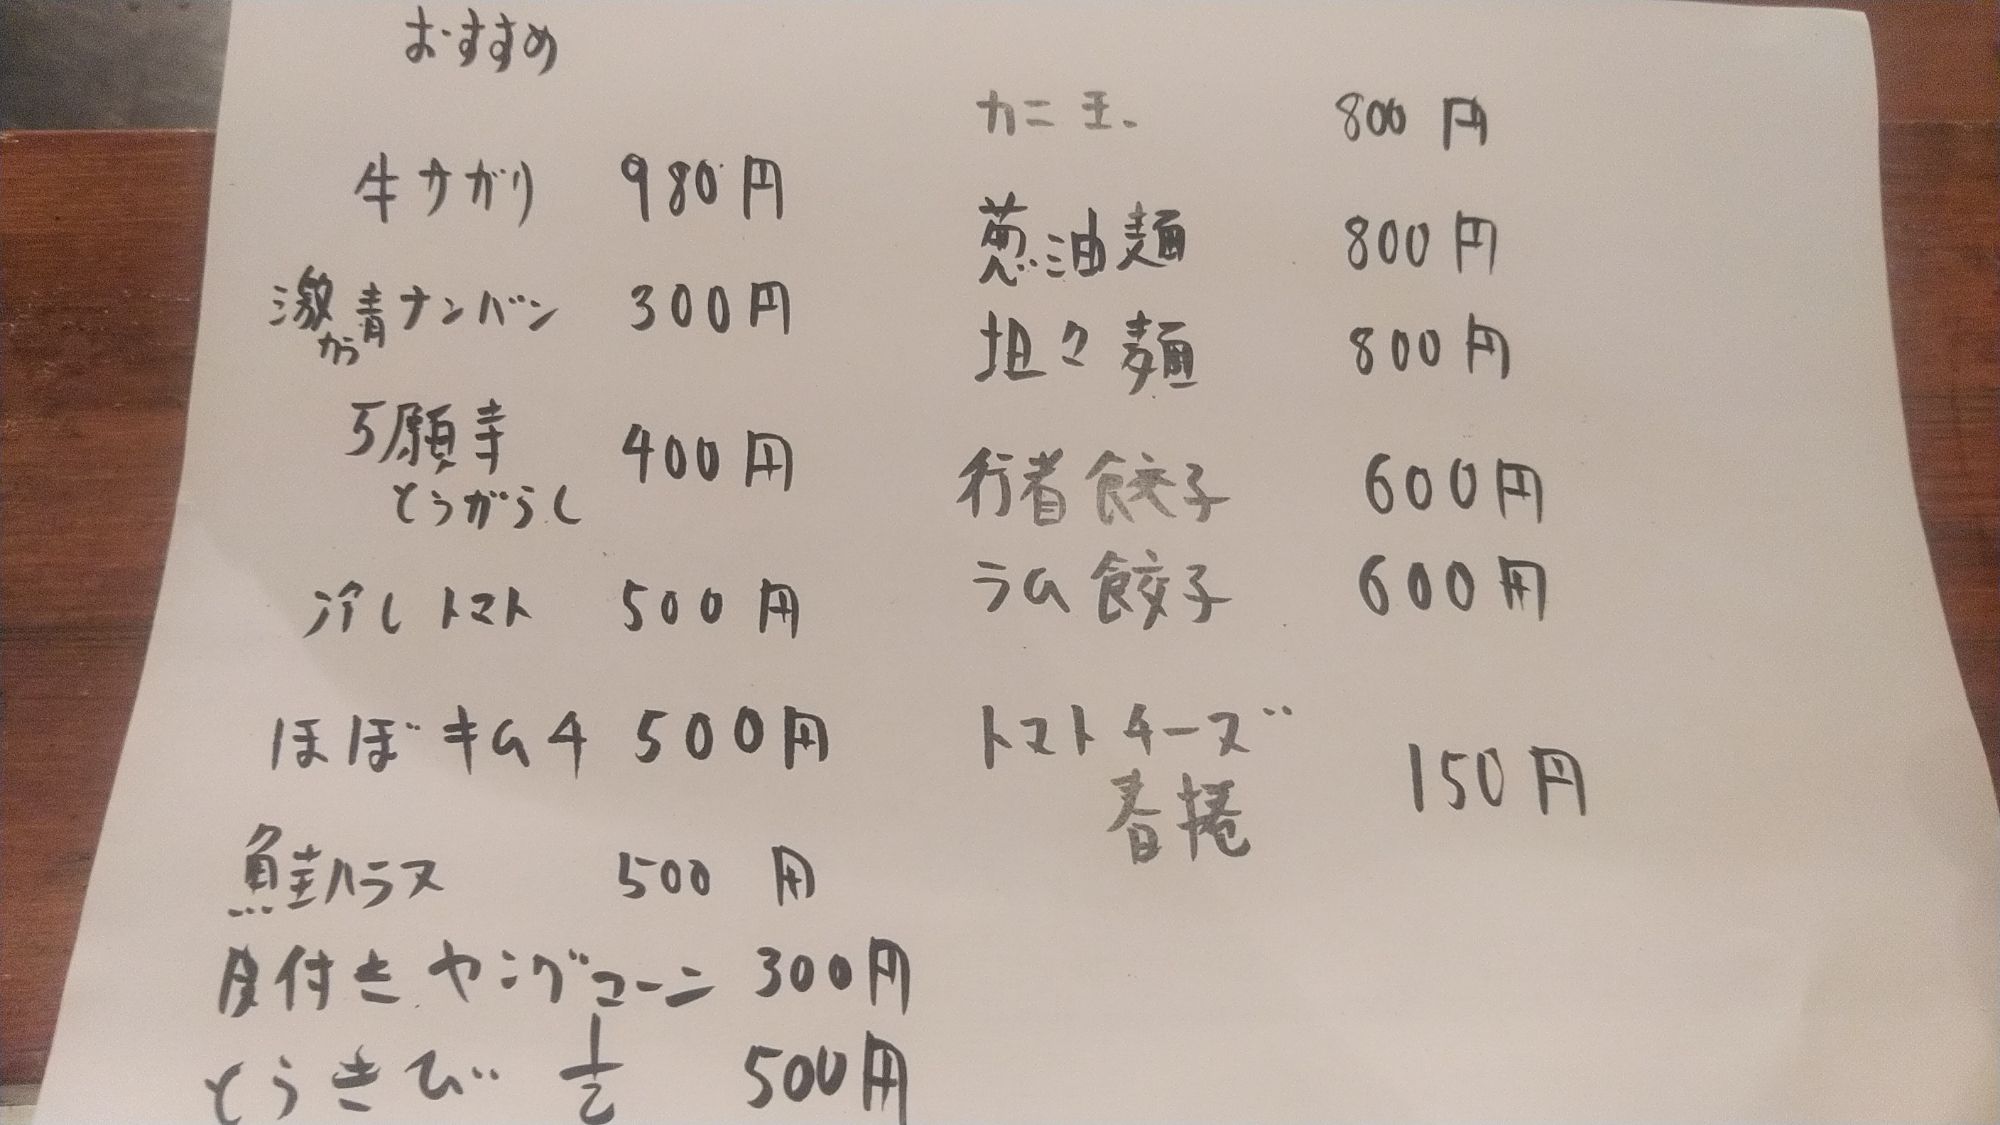 おすすめ
牛サガリ 980円
激から青ナンバン 300円
万願寺 400円
とうがらし
冷しトマト 500円
ほぼキムチ 500円
鮭ハラス 500円
皮付きヤングコーン 300円
とうきび 1/2 500円
カニ玉 800円
葱油麺 800円
坦々麺 800円
行者餃子 600円
ラム餃子 600円
トマトチーズ
春捲 150円